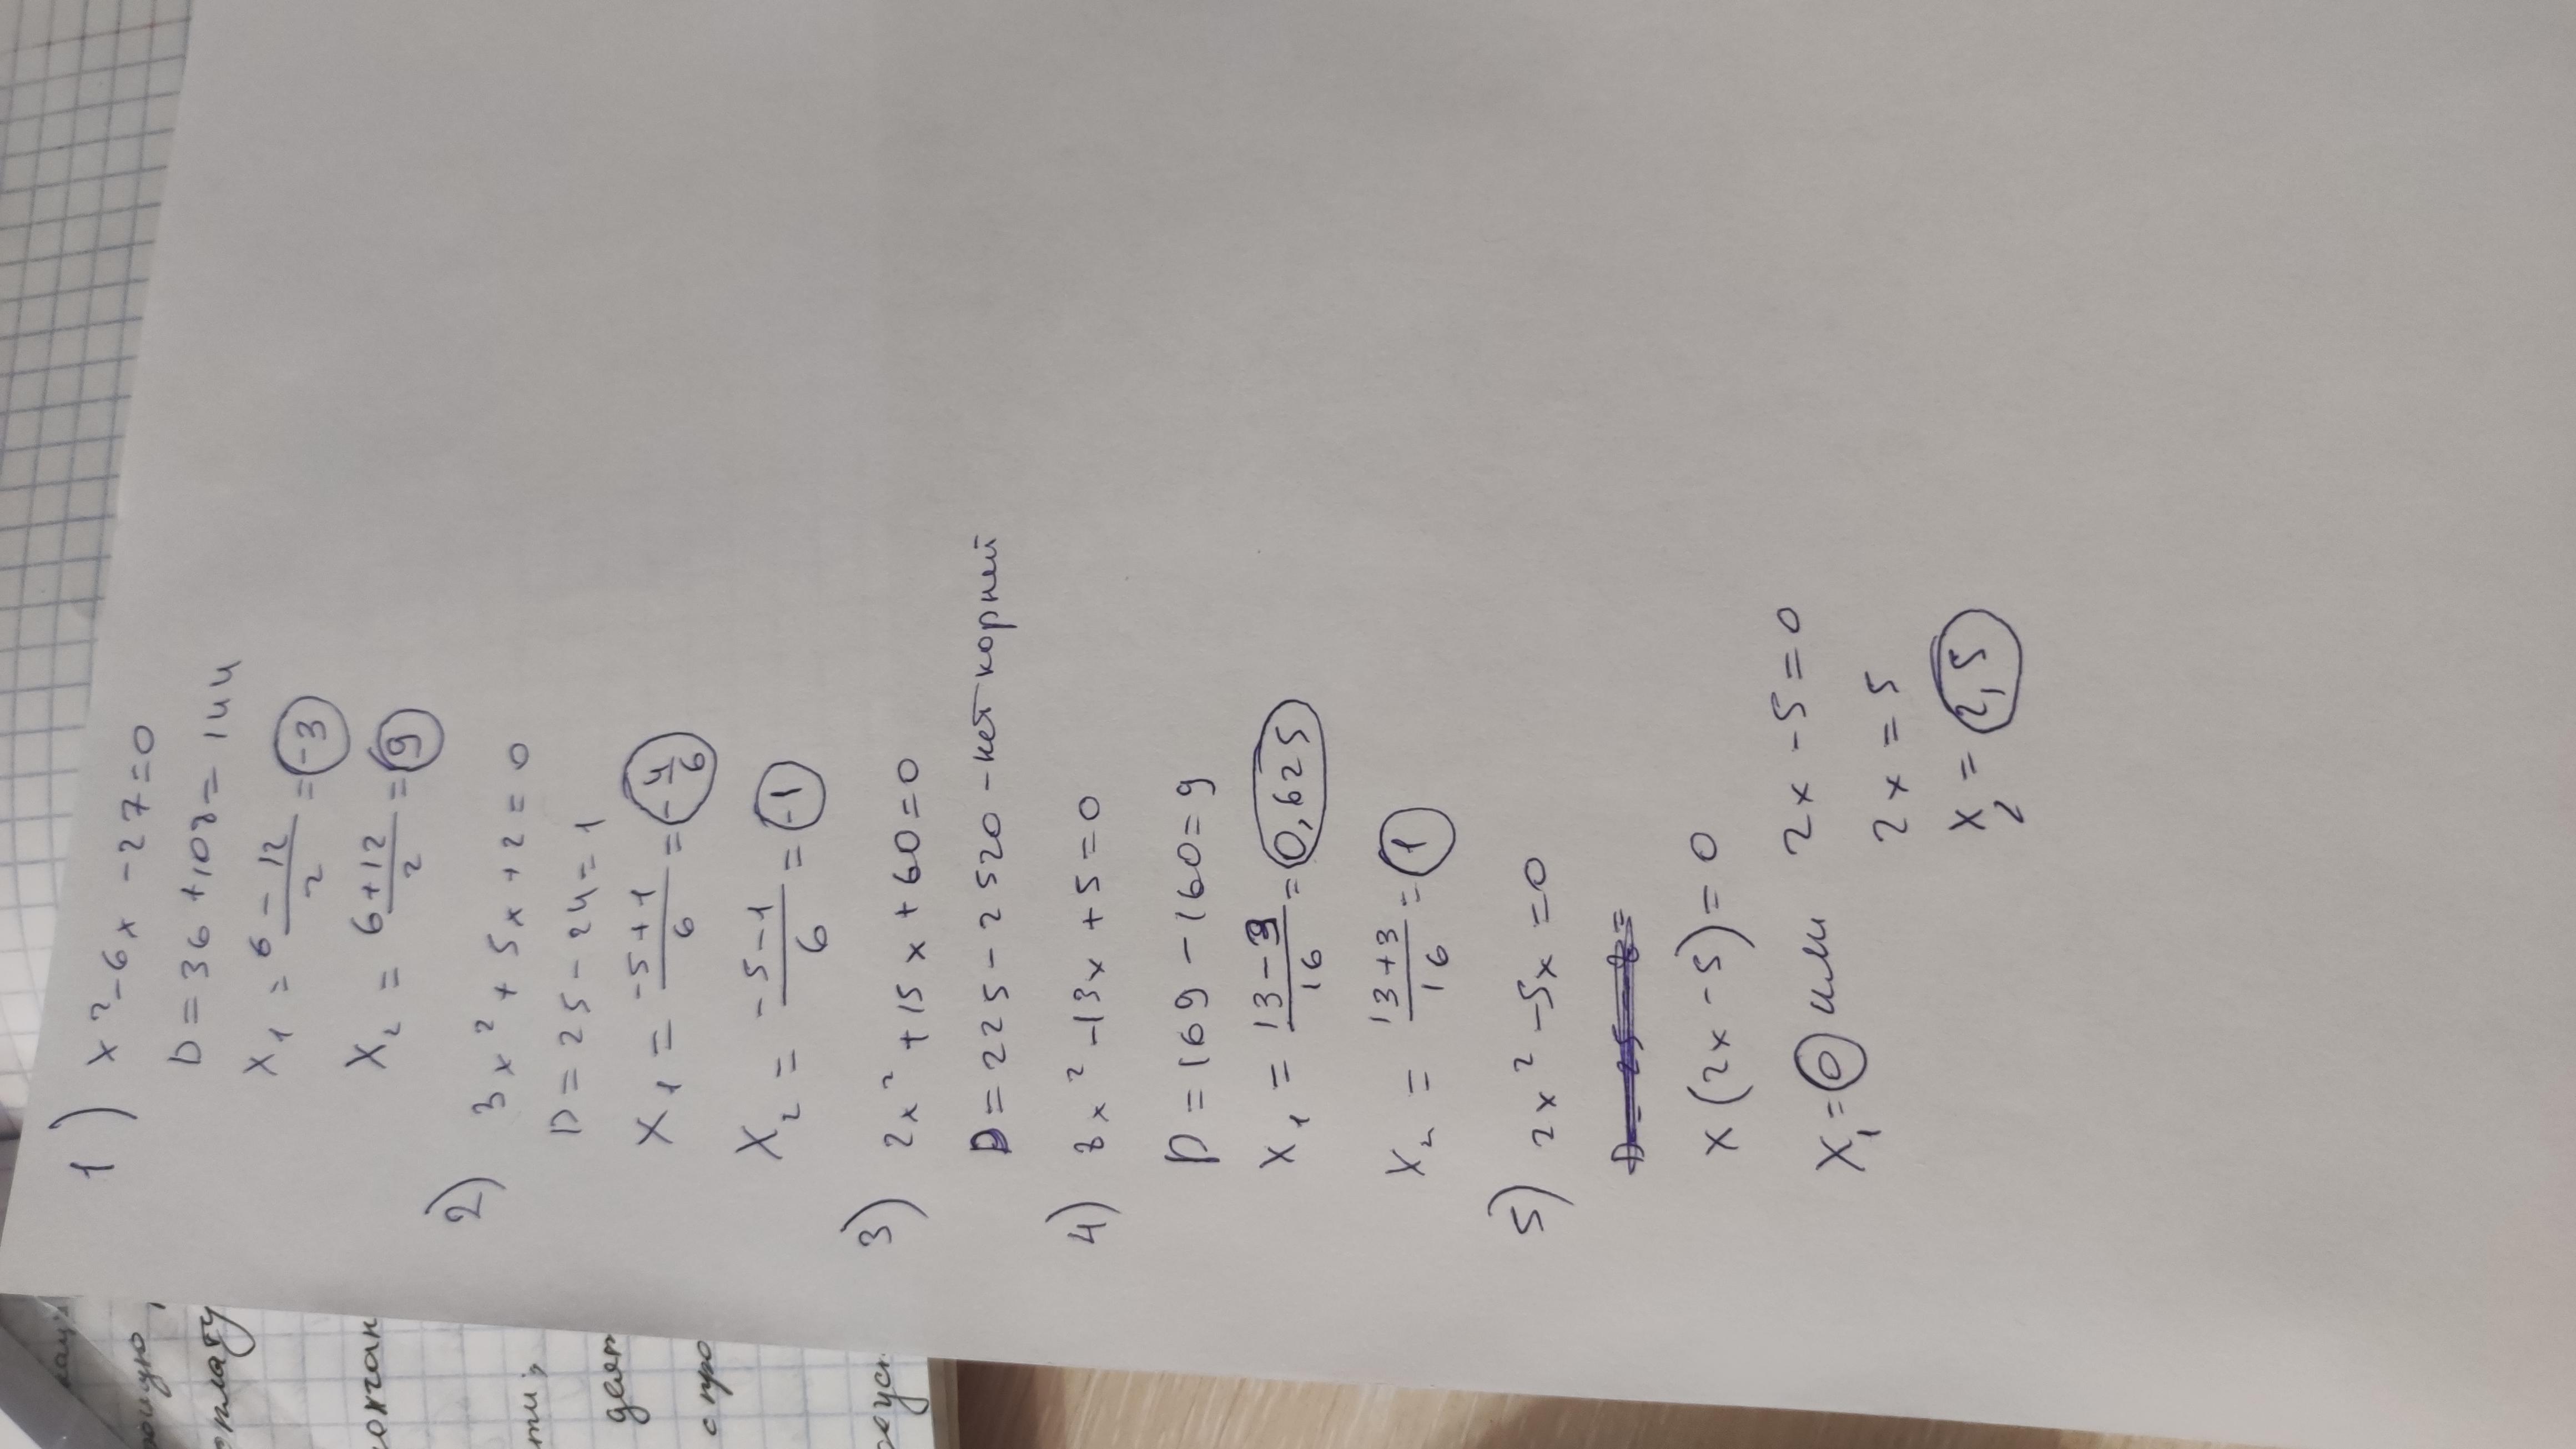 1) x² - 6x - 27 = 0
D = 36 + 108 = 144
x₁ = (6 - 12)/2 = -3
x₂ = (6 + 12)/2 = 9
2) 3x² + 5x + 2 = 0
D = 25 - 24 = 1
x₁ = (-5 + 1)/6 = -4/6
x₂ = (-5 - 1)/6 = -1
3) 2x² + 15x + 60 = 0
D = 225 - 2520 - нет корней
4) 8x² - 13x + 5 = 0
D = 169 - 160 = 9
x₁ = (13 - 3)/16 = 0,625
x₂ = (13 + 3)/16 = 1
5) 2x² - 5x = 0
x(2x - 5) = 0
x₁ = 0 или 2x - 5 = 0
2x = 5
x₂ = 2,5
с про